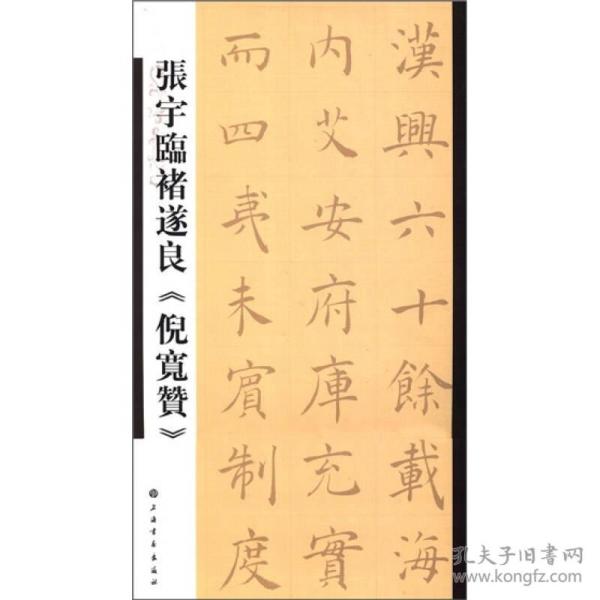 漢興六十餘載海
内艾安府庫充實
而四夷未賓制度
張宇臨褚遂良《倪寬贊》
上海書畫出版社
孔夫子旧書网
www.kongfz.com